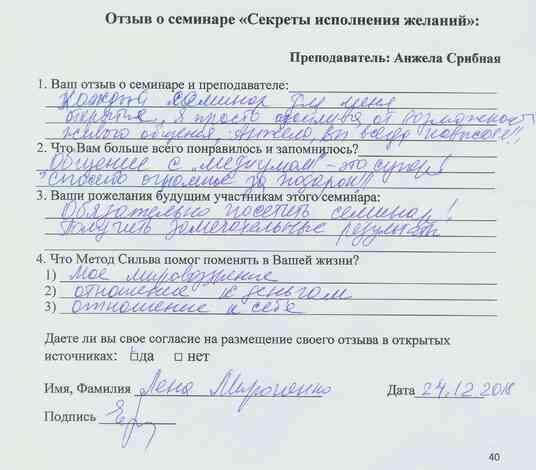 Отзыв о семинаре «Секреты исполнения желаний»:
Преподаватель: Анжела Срибная
1. Ваш отзыв о семинаре и преподавателе:
Каждый семинар для меня
открытие, я просто счастлива от возможности
живого общения. Анжела, Вы всегда
2. Что Вам больше всего понравилось и запомнилось?
Общение с "медиумом" - это супер!
Спасибо огромное за подарок!!
3. Ваши пожелания будущим участникам этого семинара:
Обязательно посетить семинар!
Получить замечательные результаты
4. Что Метод Сильва помог поменять в Вашей жизни?
1) Мое мировоззрение
2) отношение к деньгам
3) отношение к себе
Даете ли вы свое согласие на размещение своего отзыва в открытых
источниках: да нет
Имя, Фамилия Лена Мироненко Дата 24.12.2018
Подпись
40